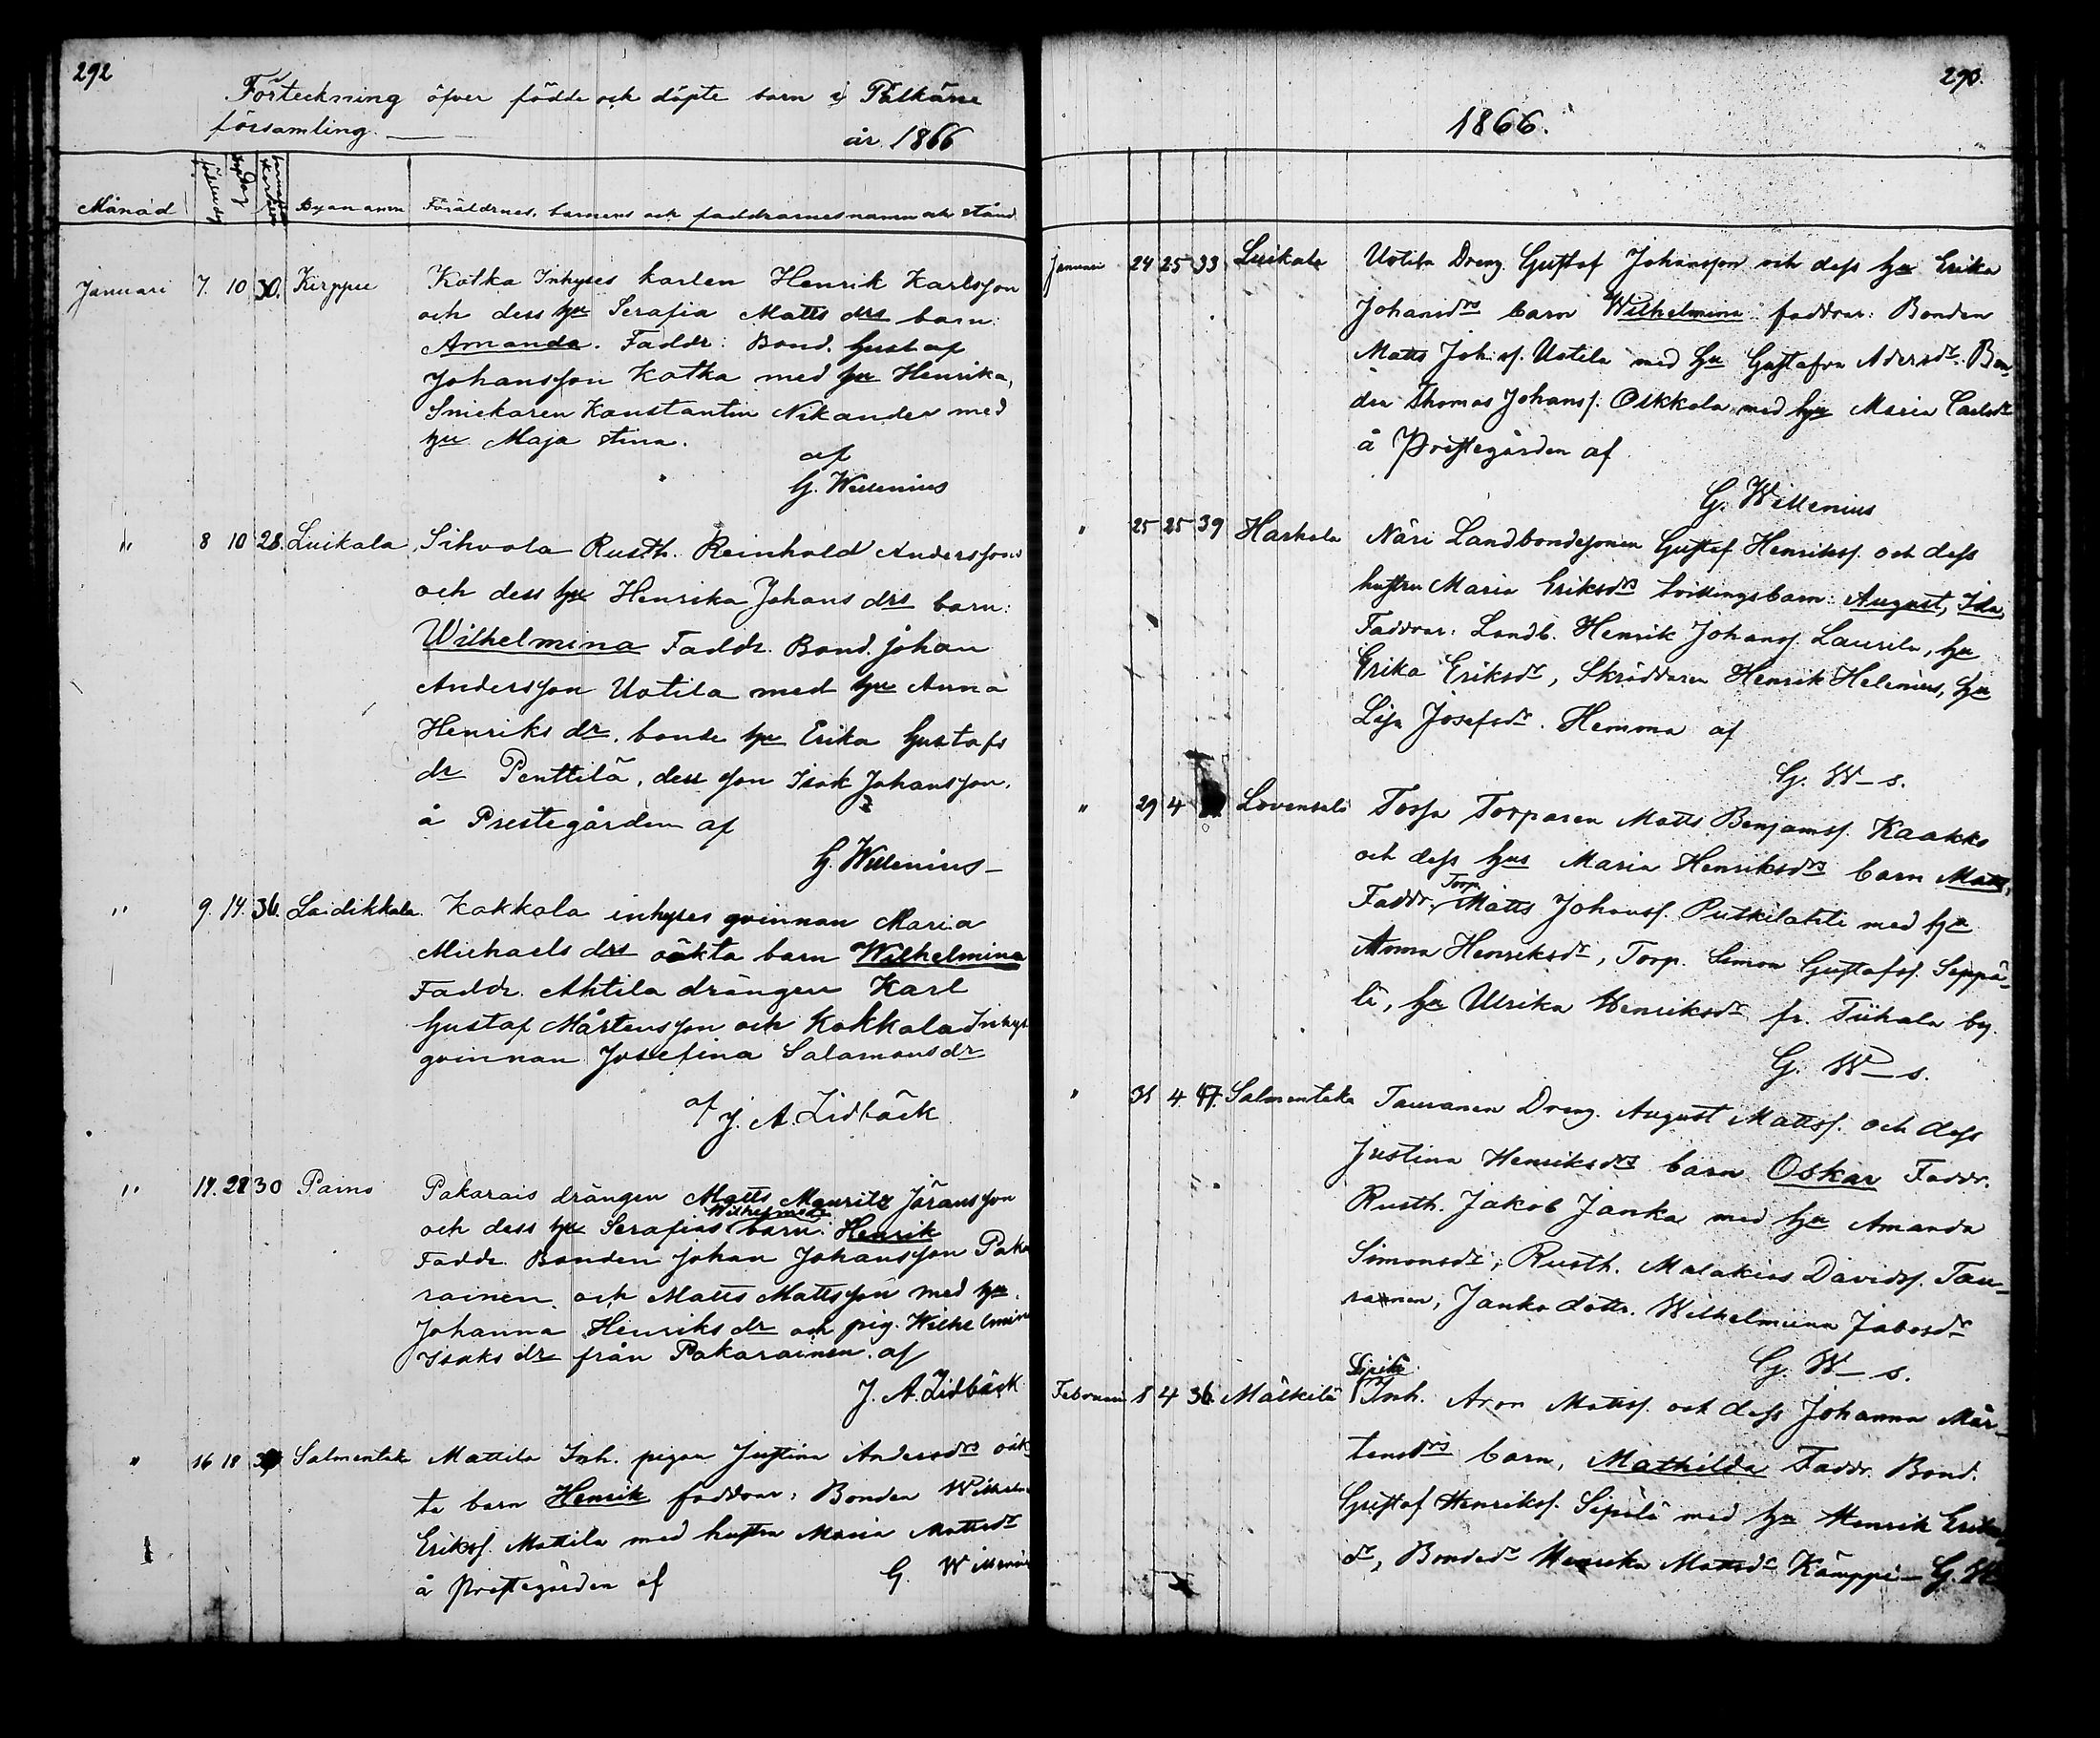 292
Förteckning öfver födde och döpte barn i Pälkäne
församling.
år 1866
Månad
Byanamn
Föräldrnes, barnens och faddrarnes namn och stånd.
Januari 7. 10 30. Kirppu Kotka Inhyses karlen Henrik Karlsson
och dess hu Serafia Matts drs barn:
Amanda. Faddr: Bond. Gustaf
Johansson Kotka med hu Henrika,
Snickaren Konstantin Nikander med
hu Maja Stina.
af
G. Willenius
" 8 10 28. Luikala Sihvola Rusth. Reinhold Andersson
och dess hu Henrika Johans drs barn:
Wilhelmina Faddr. Bond. Johan
Andersson Uotila med hu Anna
Henriks dr. bonde hu Erika Gustafs
dr Penttilä, dess son Isak Johansson.
å Prestegården af
G. Willenius
" 9. 14. 36. Laidikkala. Kokkola inhyses qvinnan Maria
Michaels drs oäkta barn Wilhelmina
Faddr. Ahtila drängen Karl
Gustaf Mårtensson och Kokkala Inhys
qvinnan Josefina Salamonsdr
af J. A. Lidbäck
" 14. 28 30 Painos Pakarais drängen Matts Mauritz Jöransson
Wilhelmsdr
och dess hu Serafias barn: Henrik
Faddr. Bonden Johan Johansson Paka
rainen och Matts Mattsson med hu.
Johanna Henriks dr och pig. Wilhelmina
Isaks dr från Pakarainen. af
J. A. Lidbäck
" 16 18 Salmentaka Mattila Inh. pigan Justina Andersdrs oäk
ta barn Henrik faddrar: Bonden Wilhelm
Eriksf. Mattila med hustru Maria Mattsdr
å prestegården af G. Willenius
290
1866.
Januari 24 25 33 Luikala Uotila Dreng. Gustaf Johansson och dess hu Erika
Johansdrs barn Wilhelmina faddrar: Bonden
Matts Joh. s. Uotila med hu Gustafva Adersdr. Bon-
den Thomas Johanss. Oskkala med hu Maria Carlsdr
å Prestegården af
G. Willenius
" 25 25 39 Harhala Näri Landbondesonen Gustaf Henrikss. och dess
hustru Maria Eriksdrs tvillingsbarn: August, Ida
Faddrar: Landb. Henrik Johanss. Laurila, hu
Erika Eriksdr, Skräddaren Henrik Helenius, hu
Lisa Josefsdr. Hemma af
G. W–s.
" 29 4 Lovensalo Torsa Torparen Matts Benjamss. Kaakko
och dess hus Maria Henriksdrs barn Matts,
Torp.
Faddr. Matts Johanss. Putkilahti med hu
Anna Henriksdr, Torp. Simon Gustafss. Seppä-
lä, hu Ulrika Henriksdr fr. Tiihala by.
G. W–s.
" 31 4 47. Salmentaka Tauranen Dreng. August Mattss. och dess
Justina Henriksdrs barn Oskar Faddr.
Rusth. Jakob Janka med hu Amanda
Simonsdr, Rusth. Malakias Davidss. Tau-
ranen, Janko dottr. Wilhelmiina Jakosdr
G. W–s.
Sipilä
Februari 8 4 36. Mälkilä Inh. Aron Mattss. och dess Johanna Mår-
tensdrs barn, Mathilda Faddr. Bond.
Gustaf Henrikss. Sipilä med hu Henrik Eriks
dr, Bondedr Henrika Mattsdr Kämppi– G. W